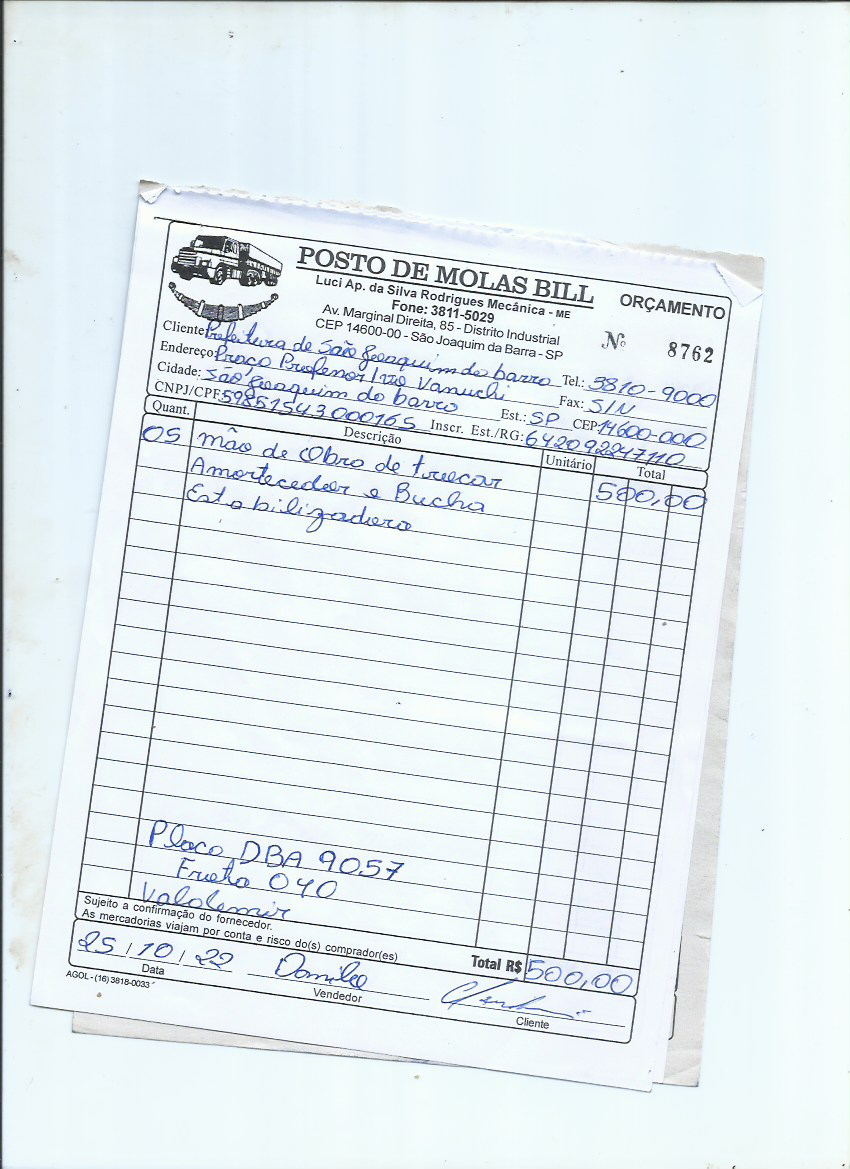 POSTO DE MOLAS BILL
Luci Ap. da Silva Rodrigues Mecânica - ME
Fone: 3811-5029
Av. Marginal Direita, 85 - Distrito Industrial
CEP 14600-00 - São Joaquim da Barra - SP
ORÇAMENTO
Nº 8762
Cliente Prefeitura de São Joaquim da barra Tel.: 3810-9000
Endereço Praça Professor Ivo Vanuchi Fax: S/N
Cidade: São Joaquim da barra Est.: SP CEP: 14600-000
CNPJ/CPF 59851543000165 Inscr. Est./RG: 642092247110
Quant. Descrição Unitário Total
05 mão de Obra de trocar 500,00
Amortecedor e Bucha
Estabilizadora
Placa DBA 9057
Frota 040
Valdemir
Sujeito a confirmação do fornecedor.
As mercadorias viajam por conta e risco do(s) comprador(es)
Total R$ 500,00
25/10/22 Danilo
Data Vendedor Cliente
AGOL - (16) 3818-0033